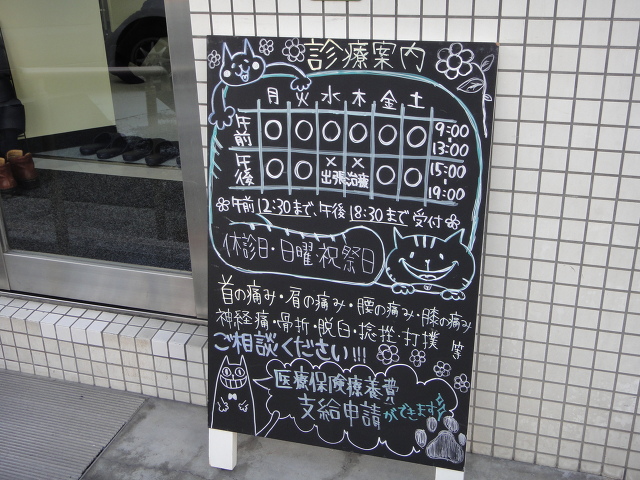 診療案内
月 火 水 木 金 土
午前 ○ ○ ○ ○ ○ ○ 9:00 〜 13:00
午後 ○ ○ × × ○ ○ 15:00 〜 19:00
出張治療
午前12:30まで、午後18:30まで受付
休診日・日曜・祝祭日
首の痛み・肩の痛み・腰の痛み・膝の痛み・
神経痛・骨折・脱臼・捻挫・打撲 等
ご相談ください!!!
医療保険療養費
支給申請ができます!